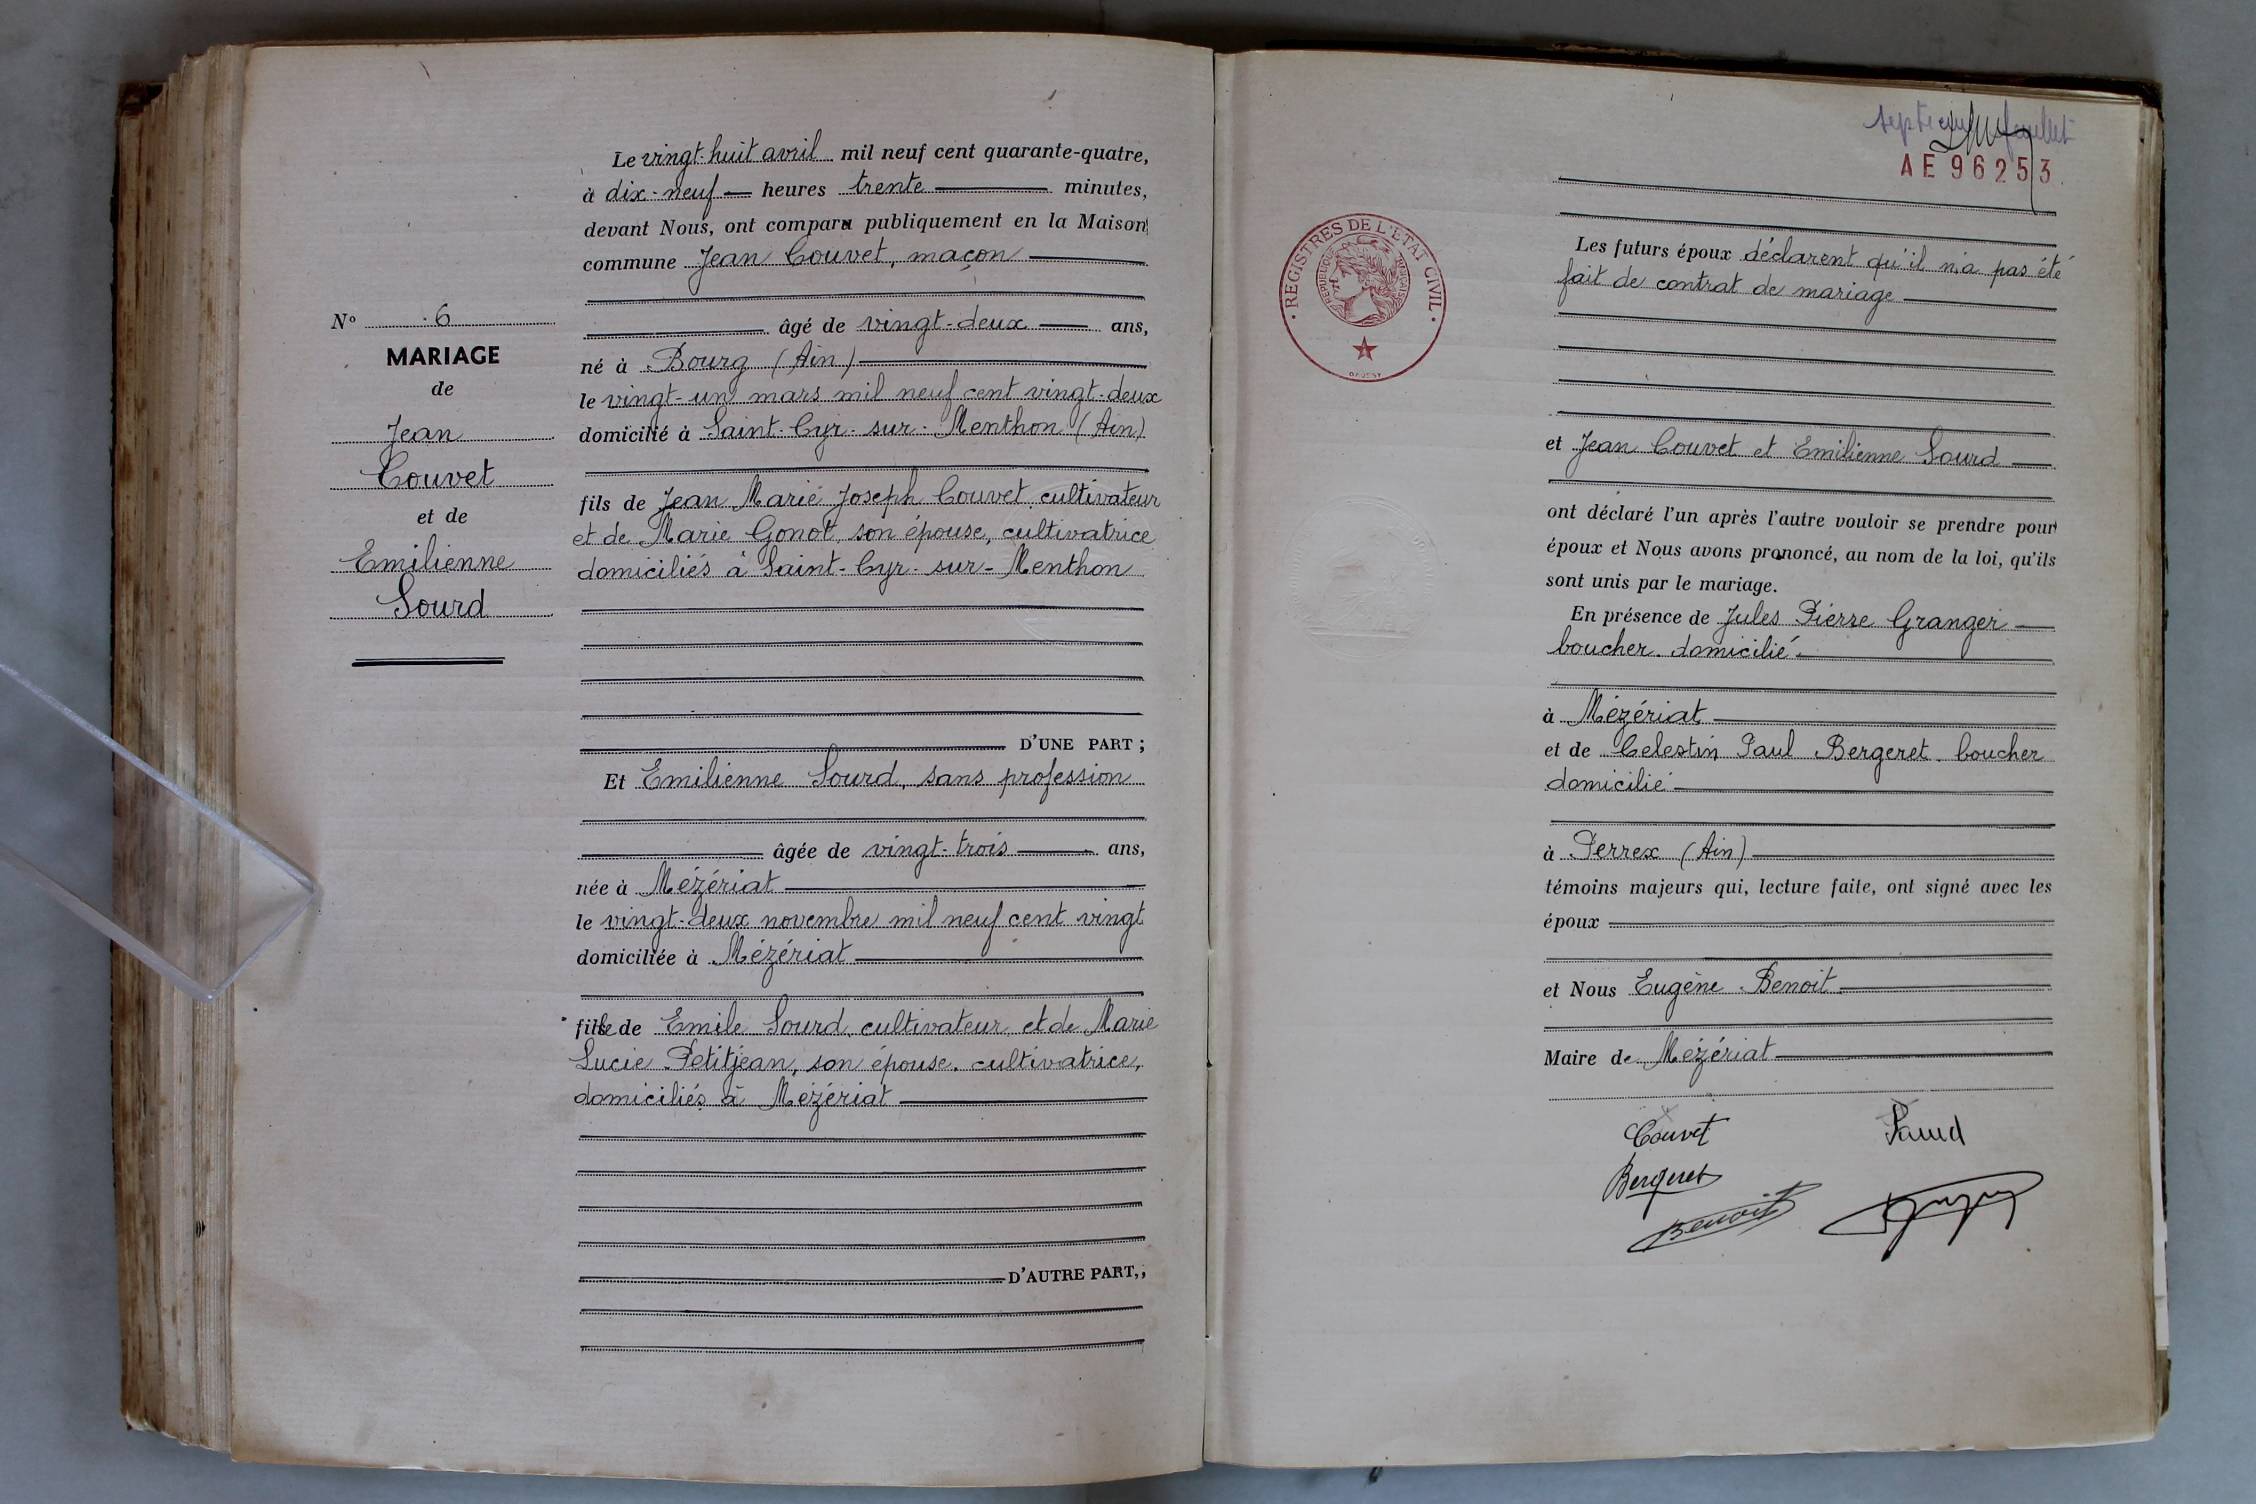 N° 6
MARIAGE
de
Jean
Couvet
et de
Emilienne
Sourd
Le vingt-huit avril mil neuf cent quarante-quatre,
à dix-neuf heures trente minutes,
devant Nous, ont comparu publiquement en la Maison
commune Jean Couvet, maçon
âgé de vingt-deux ans,
né à Bourg (Ain)
le vingt-un mars mil neuf cent vingt-deux
domicilié à Saint-Cyr-sur-Menthon (Ain)
fils de Jean Marie Joseph Couvet cultivateur
et de Marie Gonot, son épouse, cultivatrice
domiciliés à Saint-Cyr-sur-Menthon
D'UNE PART ;
Et Emilienne Sourd, sans profession
âgée de vingt-trois ans,
née à Mézériat
le vingt-deux novembre mil neuf cent vingt
domiciliée à Mézériat
fille de Emile Sourd, cultivateur et de Marie
Lucie Petitjean, son épouse, cultivatrice,
domiciliés à Mézériat
D'AUTRE PART,;
feuillet
AE 96253
REGISTRES DE L'ÉTAT CIVIL
RÉPUBLIQUE FRANÇAISE
Les futurs époux déclarent qu'il n'a pas été
fait de contrat de mariage
et Jean Couvet et Emilienne Sourd
ont déclaré l'un après l'autre vouloir se prendre pour
époux et Nous avons prononcé, au nom de la loi, qu'ils
sont unis par le mariage.
En présence de Jules Pierre Granger
boucher. domicilié
à Mézériat
et de Celestin Paul Bergeret. boucher
domicilié
à Perrex (Ain)
témoins majeurs qui, lecture faite, ont signé avec les
époux
et Nous Eugène Benoit
Maire de Mézériat
Couvet
Bergeret
Benoit